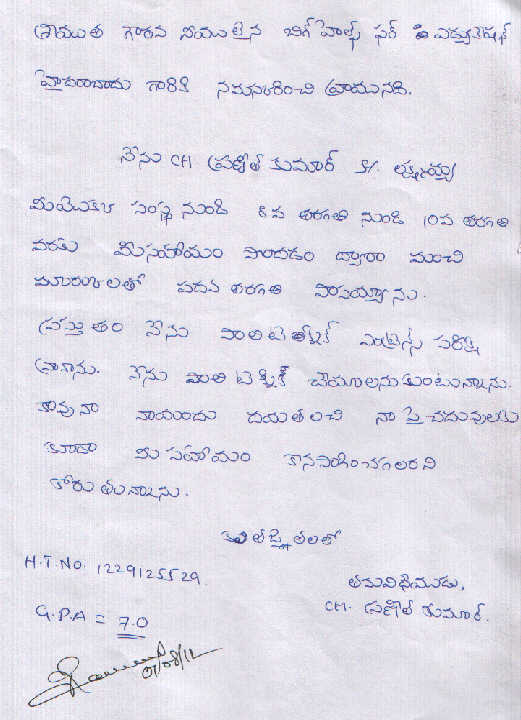 శ్రీయుత గౌరవ నీయులైన బిగ్ హెల్ప్ ఫర్ ఎడ్యుకేషన్
హైదరాబాదు గారికి నమస్కరించి వ్రాయునది.
నేను CH ప్రణీత్ కుమార్ S/o. లక్ష్మయ్య
మీయొక్క సంస్థ నుండి 8వ తరగతి నుండి 10వ తరగతి
వరకు మీసహాయం పొందడం ద్వారా మంచి
మార్కులతో పదవ తరగతి పాసయ్యాను.
ప్రస్తుతం నేను పాలిటెక్నిక్ ఎంట్రెన్స్ పరీక్ష
వ్రాశాను. నేను పాలిటెక్నిక్ చేయాలనుకుంటున్నాను.
కావున నాయందు దయతలచి నా పై చదువులకు
కూడా మీ సహాయం కొనసాగించగలరని
కోరుతున్నాను.
కృతజ్ఞతలతో
H.T.NO. 1229125529
తమవిధేయుడు,
CH. ప్రణీత్ కుమార్.
G.P.A = 7.0
01/08/12